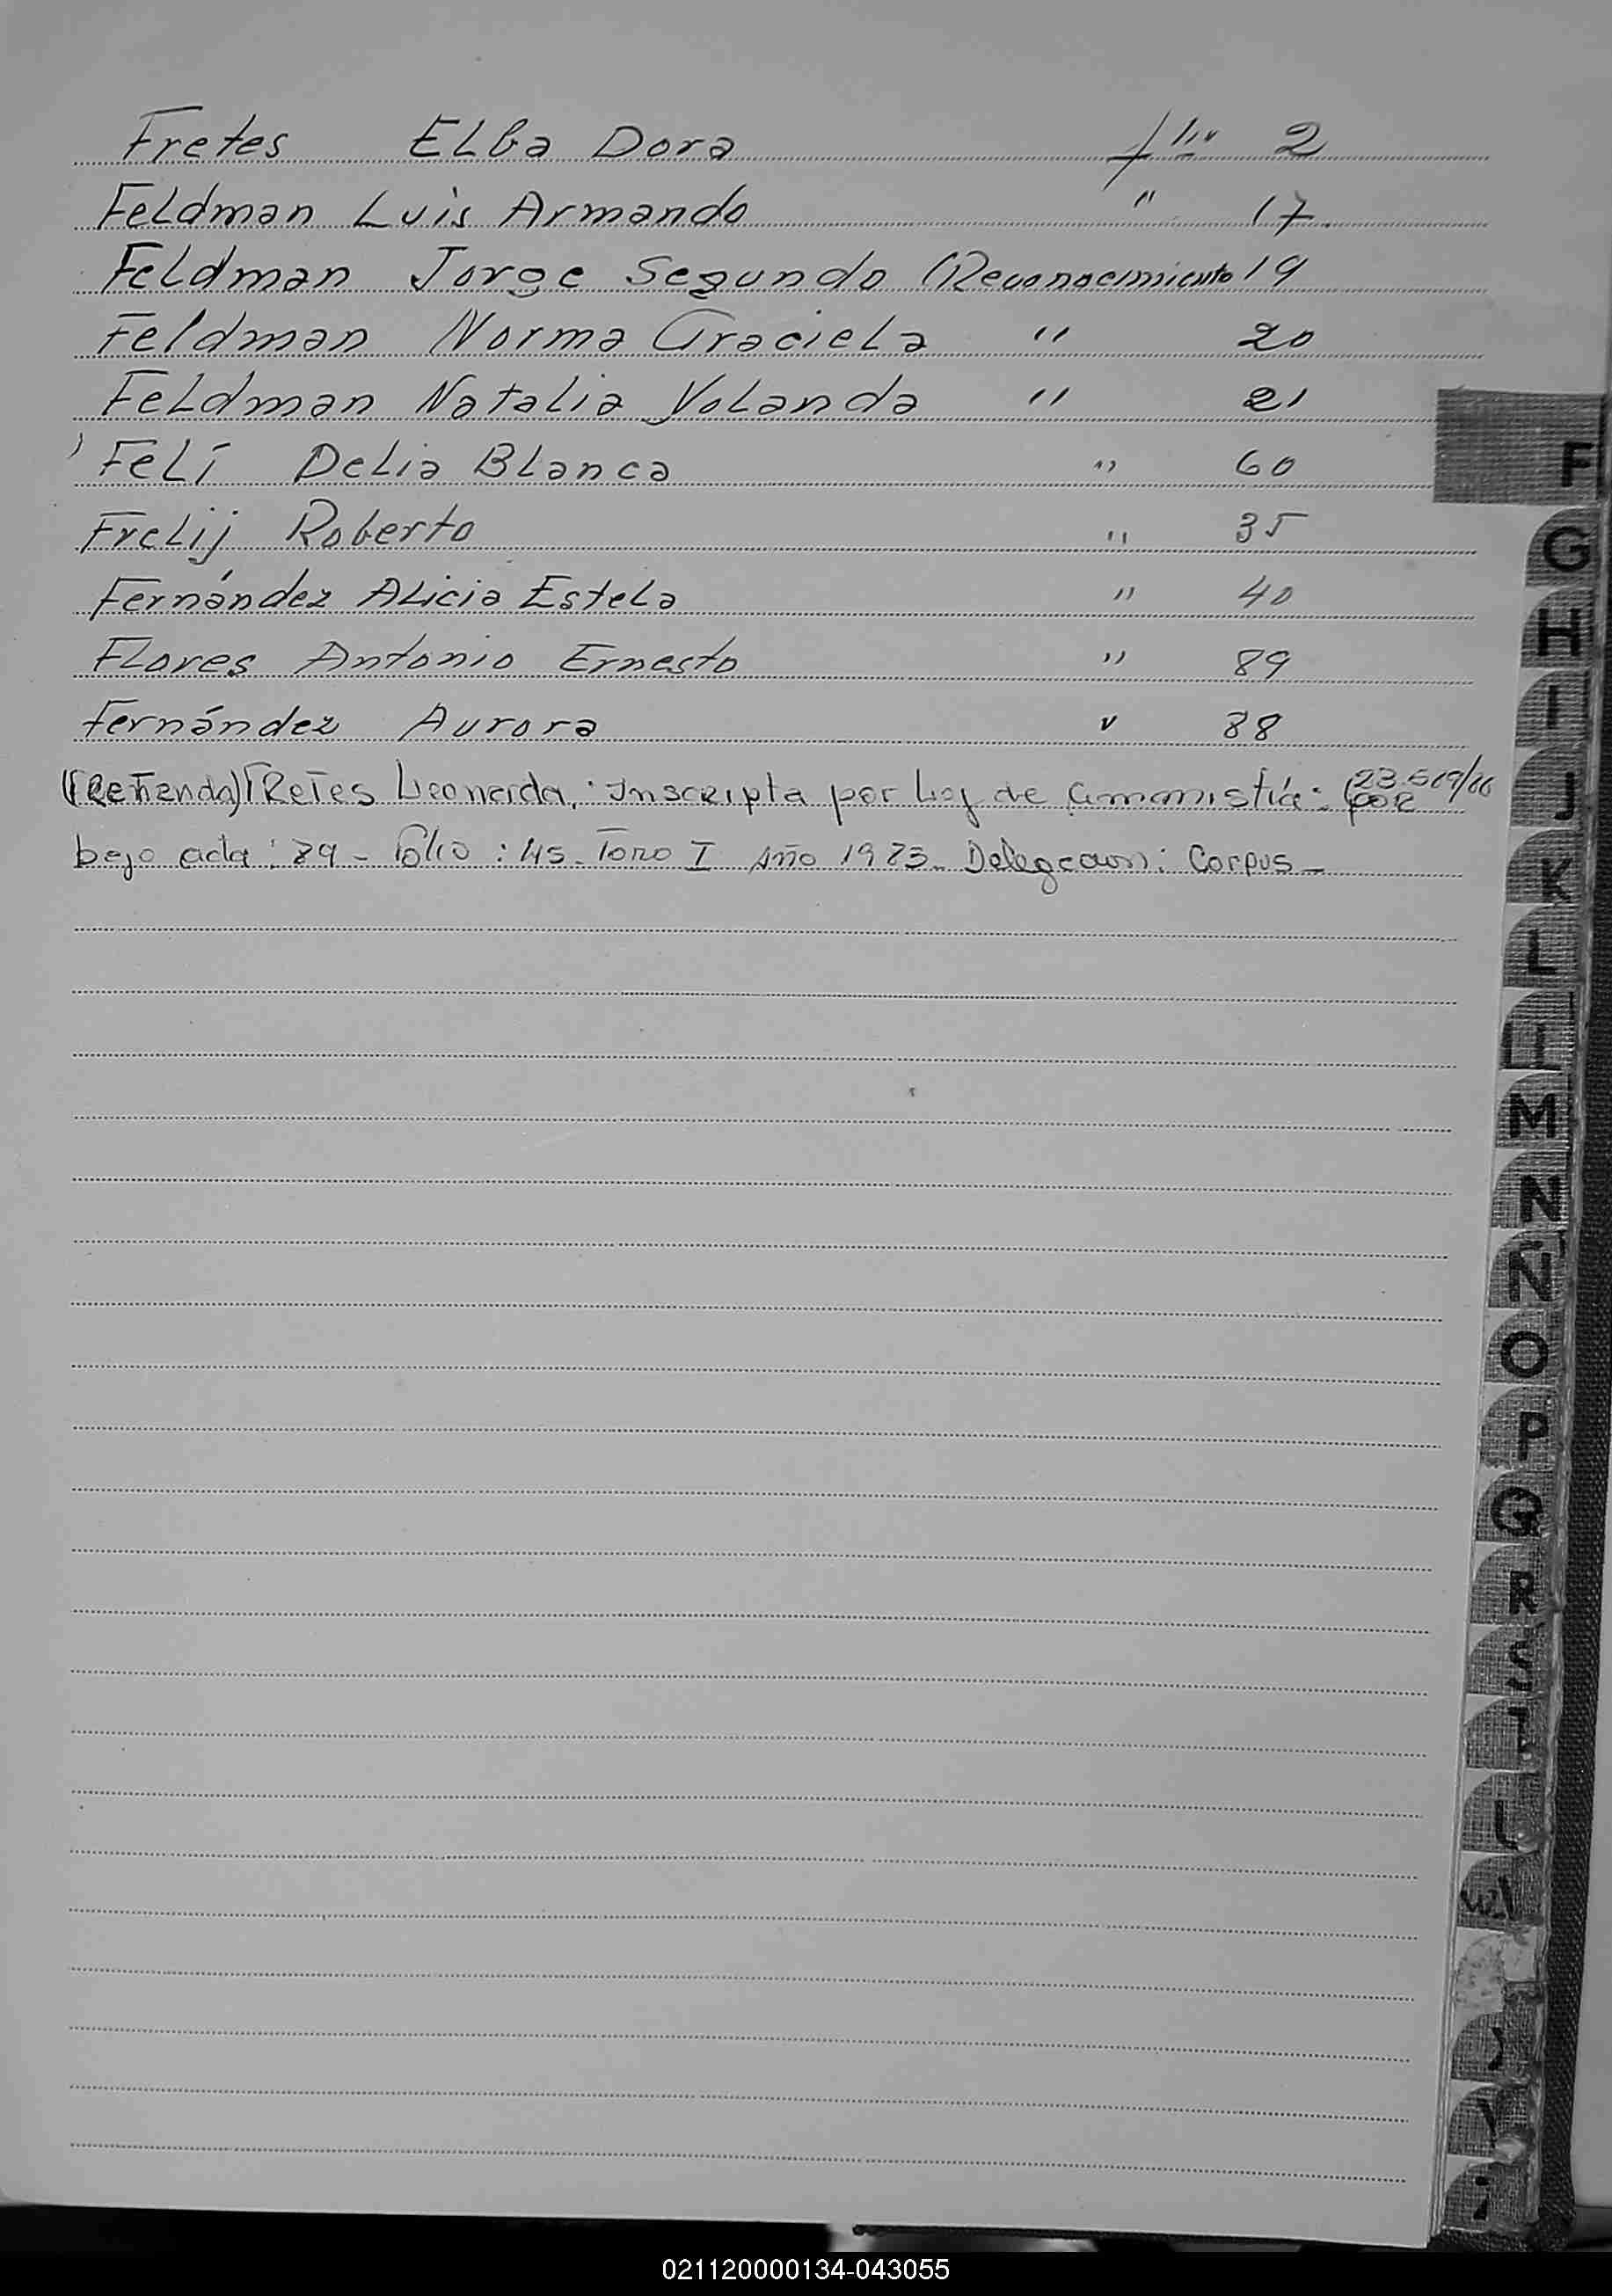 Fretes Elba Dora 2
Feldman Luis Armando " 17
Feldman Jorge Segundo (Reconocimiento 19
Feldman Norma Graciela " 20
Feldman Natalia Yolanda " 21
Felí Delia Blanca " 60
Frelij Roberto " 35
Fernández Alicia Estela " 40
Flores Antonio Ernesto " 89
Fernández Aurora " 88
Fretes Leonarda. Inscripta por Ley de amnistía:
bajo acta: 89 - Folio: 45 - Tomo I Año 1983 - Delegacion: Corpus -
F
G
H
I
J
K
L
LL
M
N
Ñ
O
P
Q
R
S
T
021120000134-043055